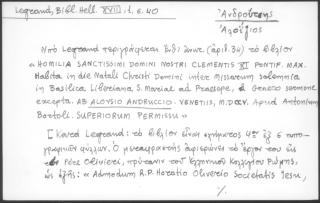 Legrand, Bibl. Hell. XVIII, 1, σ. 40
Ἀνδρούτσης
Ἀλοΐσιος
Ὑπὸ Legrand περιγράφεται ἔνθ' ἄνω (ἀριθ. 34) τὸ βιβλίον
« HOMILIA SANCTISSIMI DOMINI NOSTRI CLEMENTIS XI PONTIF. MAX.
Habita in die Natali Christi Domini inter Missarum solemnia
in Basilica Liberiana, S. Mariae ad Praesepe, è Graeco sermone
excepta AB ALOYSIO ANDRUCCIO. VENETIIS, M.DCCV. Apud Antonium
Bortoli. SUPERIORUM PERMISSU »
[ Κατὰ Legrand: τὸ βιβλίον εἶναι σχήματος 4ον ἐξ 6 τυπο-
γραφικῶν φύλλων. Ὁ μεταφραστὴς ἀφιερώνει τὸ ἔργον του εἰς
τὸν Père Olivieri, πρύτανιν τοῦ Ἑλληνικοῦ Κολλεγίου Ρώμης,
ὡς ἑξῆς: « Admodum R.P. Horatio Oliverio Societatis Iesu,
%.